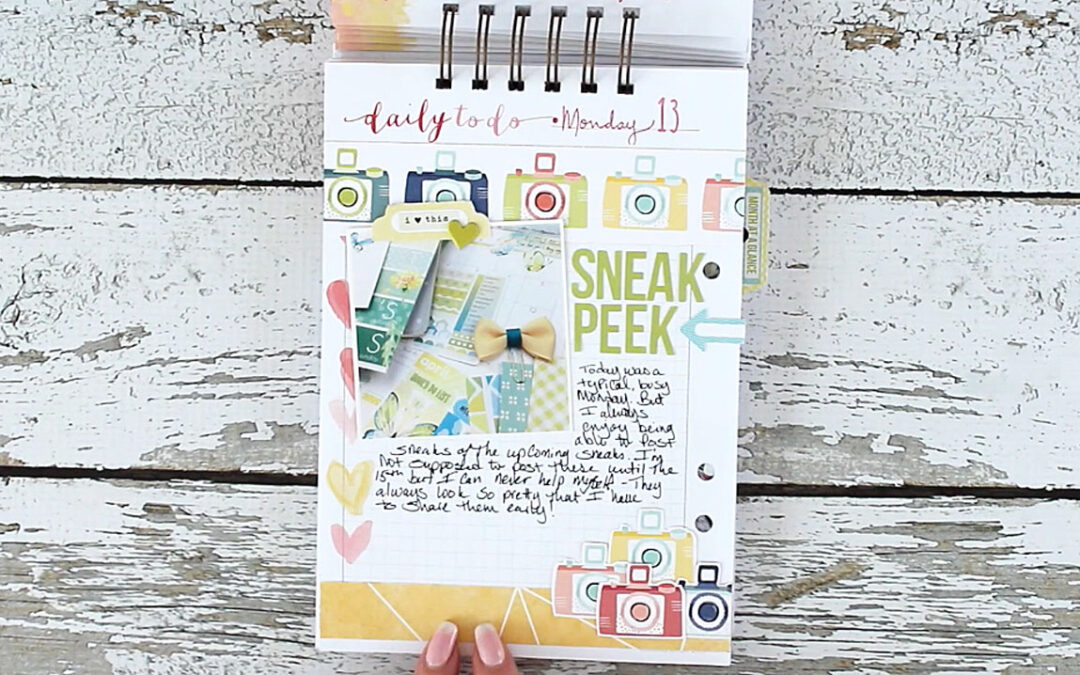 daily to do • Monday 13
i ♥ this
MONTH AT A GLANCE
SNEAK
PEEK
'S
S
april
Today was a
typical, busy
Monday. But
I always
enjoy being
able to post
sneaks of the upcoming sneaks. I'm
not supposed to post these until the
15th but I can never help myself - They
always look so pretty that I have
to share them early!